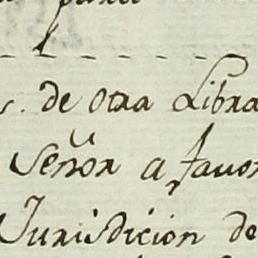 de otra Libra
Señor a favor
Jurisdicion de